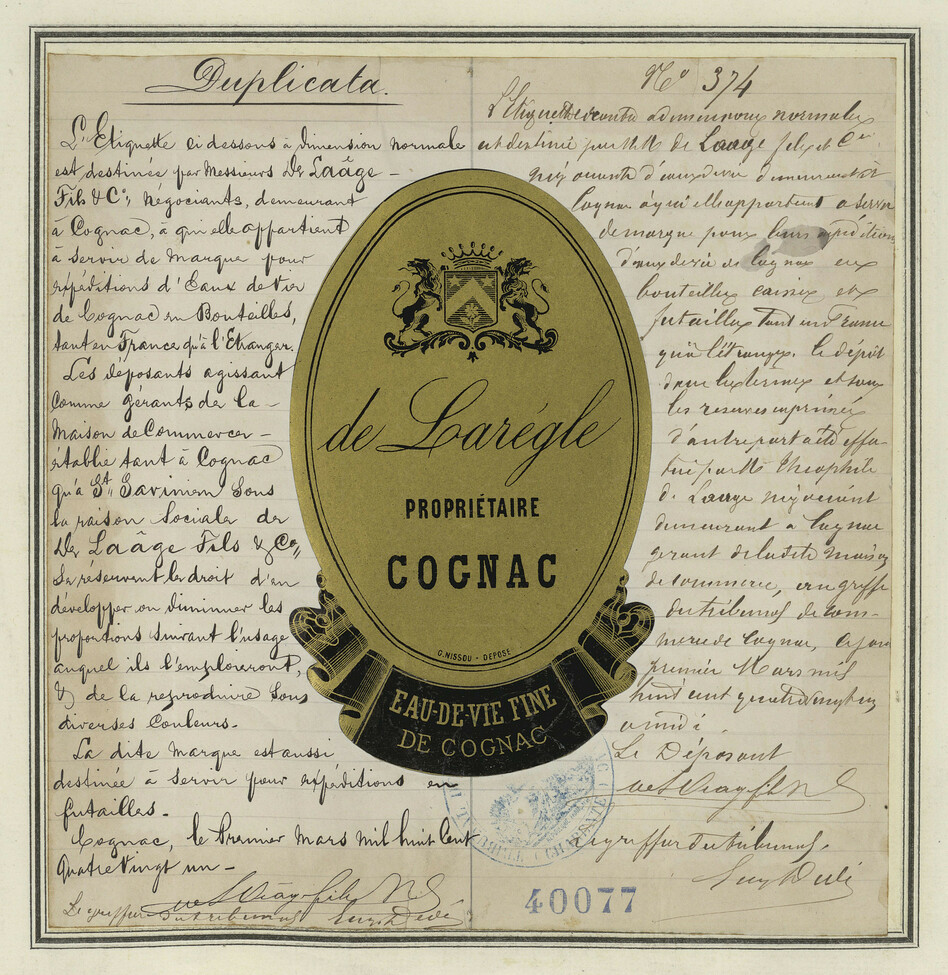 Duplicata.
L'Etiquette ci dessous à dimension normale
est destinée par Messieurs De Laâge
Fils & Cº, Négociants, demeurant
à Cognac, à qui elle appartient
à servir de marque pour
expéditions d'Eaux de Vie
de Cognac en Bouteilles,
tant en France qu'à l'Etranger.
Les déposants agissant
comme gérants de la
Maison de Commerce
établie tant à Cognac
qu'à St Savinien sous
la raison sociale de
De Laâge Fils & Co,
se réservent le droit d'en
développer ou diminuer les
proportions suivant l'usage
auquel ils l'emploieront,
& de la reproduire sous
diverses couleurs.
La dite marque est aussi
destinée à servir pour expéditions en
futailles.
Cognac, le Premier Mars mil huit cent
quatre vingt un
Le greffier du tribunal
de Larégle
PROPRIÉTAIRE
COGNAC
C. NISSOU - DEPOSÉ
EAU-DE-VIE FINE
DE COGNAC
Nº 374
L'étiquette ci contre a dimensions normales
est destinée par MM. de Laage fils et Cie
négociants d'eaux de vie demeurant à
Cognac à qui elle appartient a servir
de marque pour leurs expéditions
d'eaux de vie de Cognac en
bouteilles caisses et
futailles tant en France
qu'à l'étranger. le dépôt
dans les termes et sous
les reserves exprimées
d'autre part a été effec-
tué par M. Théophile
de Laage négociant
demeurant a Cognac
gerant de la dite maison
de commerce, au greffe
du tribunal de com-
merce de Cognac, le jour
premier Mars mil
huit cent quatre vingt un
a midi
Le Déposant
Le greffier du tribunal.
40077